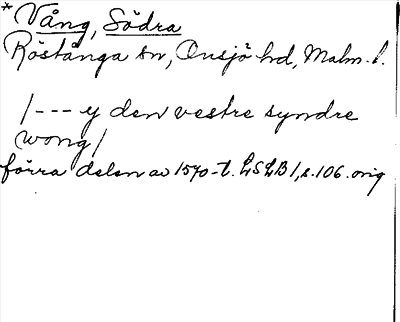 * Vång, Södra
Röstånga sn, Onsjö hd, Malm. l.
/--- y den vestre syndre
wong/
förra delen av 1570-t. LSLB 1, s. 106. orig